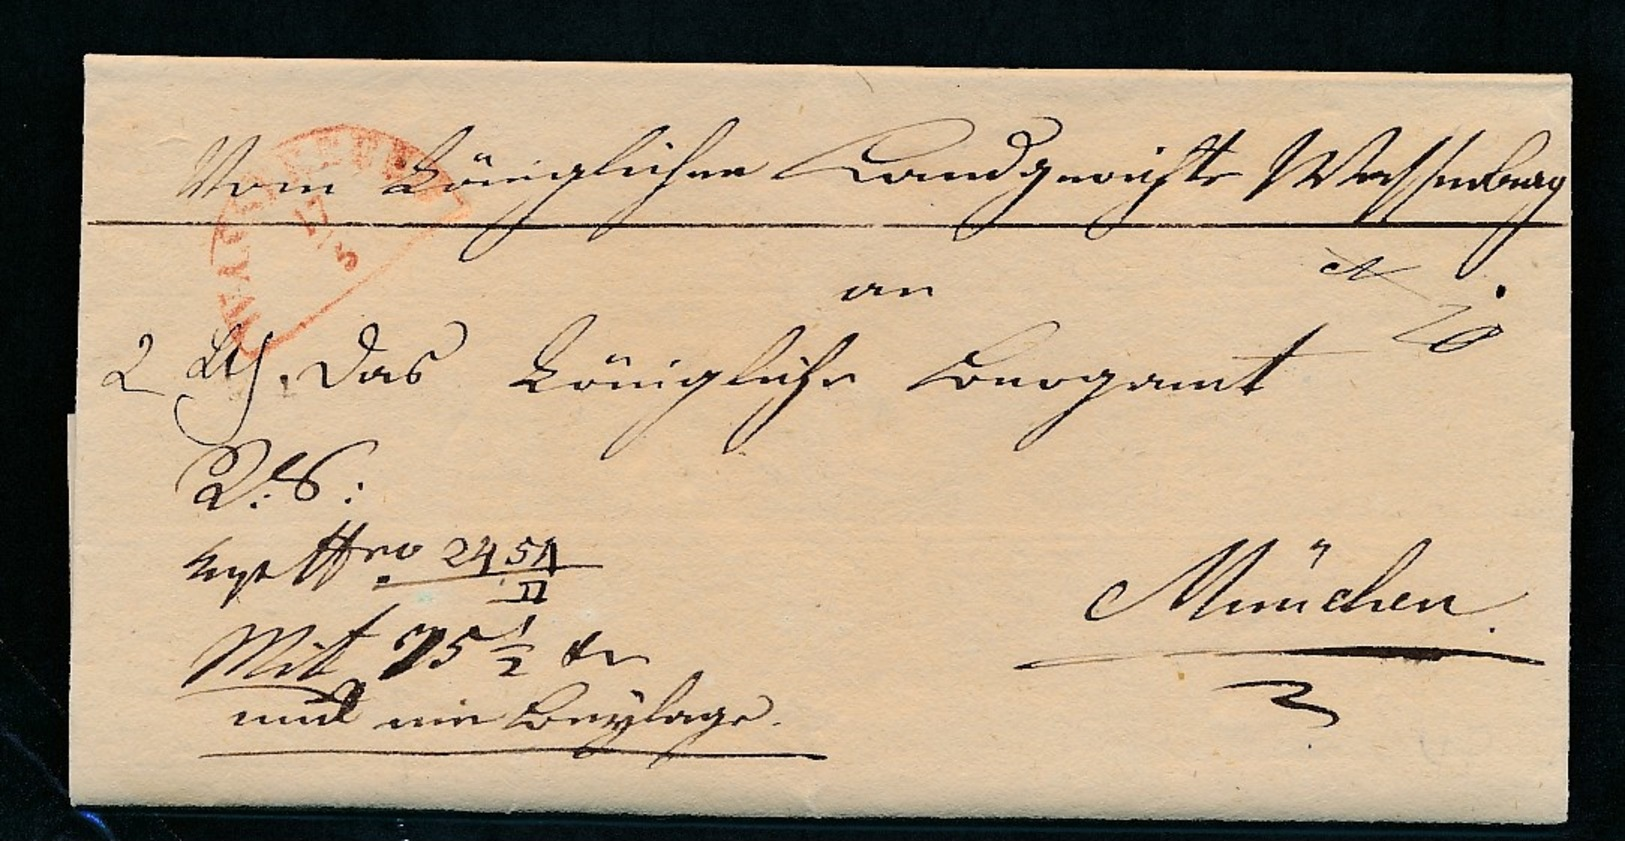 Vom Königlichen Landgerichte Wasserburg
WASSERBURG
17/5
an
2 Lth. Das Königliche Bergamt
R. S:
Expt Nro 2451
II
München.
Mit 75 1/2 kr
und ein Beylage.